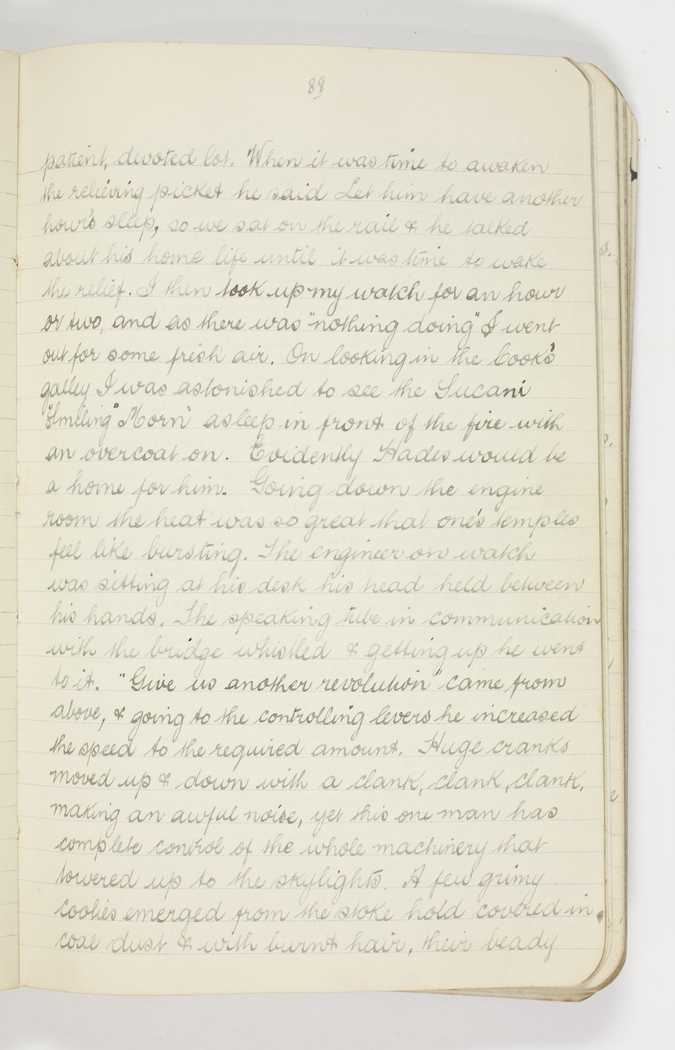 88
patient, devoted lot. When it was time to awaken
the relieving picket he said Let him have another
hour's sleep, so we sat on the rail & he talked
about his home life until it was time to wake
the relief. I then took up my watch for an hour
or two, and as there was "nothing doing" I went
out for some fresh air. On looking in the Cook's
galley I was astonished to see the Sucani
"Smiling Morn" asleep in front of the fire with
an overcoat on. Evidently Hades would be
a home for him. Going down the engine
room the heat was so great that one's temples
feel like bursting. The engineer on watch
was sitting at his desk his head held between
his hands. The speaking tube in communication
with the bridge whistled & getting up he went
to it. "Give us another revolution" came from
above, & going to the controlling levers he increased
the speed to the required amount. Huge cranks
moved up & down with a clank, clank, clank,
making an awful noise, yet this one man has
complete control of the whole machinery that
towered up to the skylights. A few grimy
coolies emerged from the stoke hold covered in
coal dust & with burnt hair, their beady